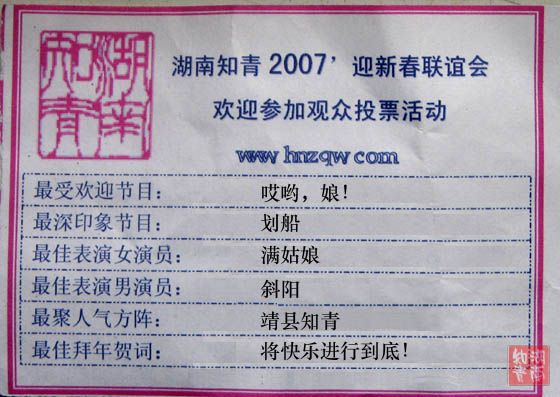 湖南知青
湖南知青2007’迎新春联谊会
欢迎参加观众投票活动
www hnzqw com
最受欢迎节目： 哎哟，娘！
最深印象节目： 划船
最佳表演女演员： 满姑娘
最佳表演男演员： 斜阳
最聚人气方阵： 靖县知青
最佳拜年贺词： 将快乐进行到底！
湖南知青